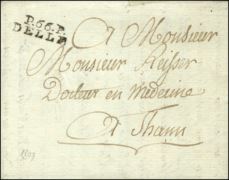 P.66.P.
DELLE
A Monsieur
Monsieur Reisser
Docteur en Medecine
A Thann